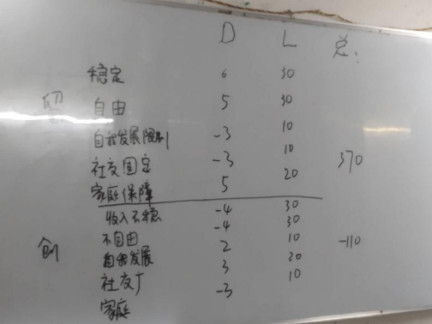 D L 总:
稳定 6 30
自由 5 30
自我发展限制 -3 10
社交固定 -3 10 370
家庭保障 5 20
收入不稳 -4 30
不自由 -4 30
创 自我发展 2 10 -110
社交广 3 20
家庭 -3 10